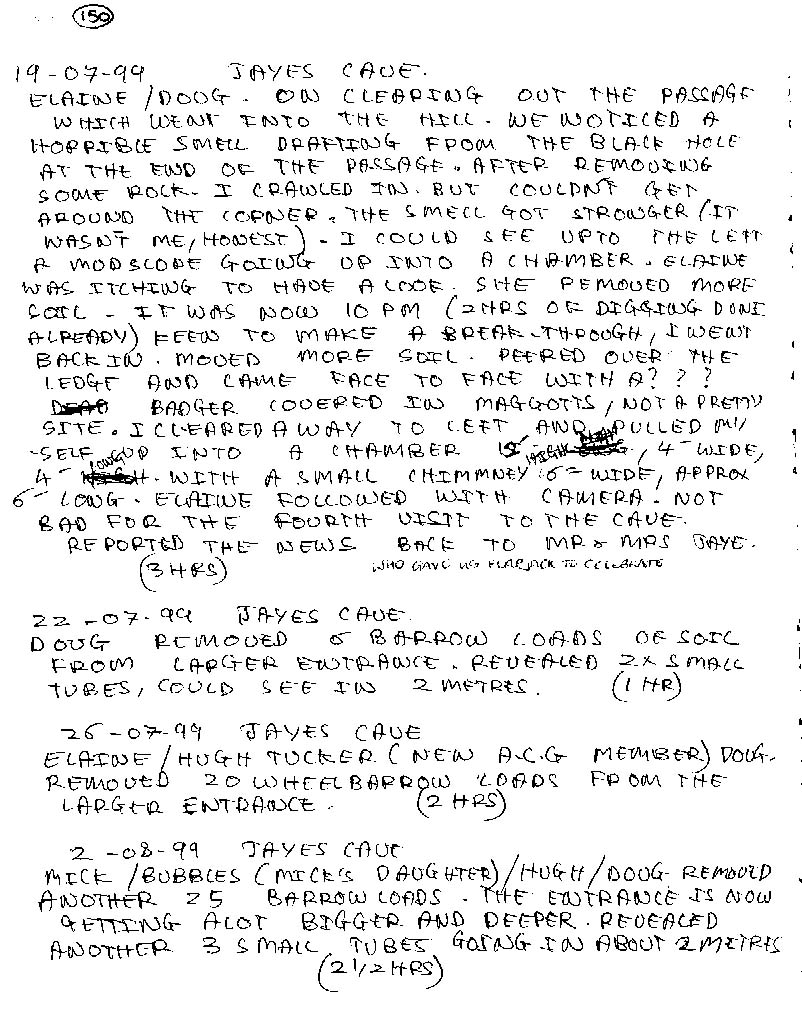 150
19-07-99 JAYES CAVE.
ELAINE/DOUG. ON CLEARING OUT THE PASSAGE
WHICH WENT INTO THE HILL. WE NOTICED A
HORRIBLE SMELL DRAFTING FROM THE BLACK HOLE
AT THE END OF THE PASSAGE. AFTER REMOVING
SOME ROCK. I CRAWLED IN. BUT COULDN'T GET
AROUND THE CORNER. THE SMELL GOT STRONGER (IT
WASN'T ME, HONEST) - I COULD SEE UPTO THE LEFT
A MUDSLOPE GOING UP INTO A CHAMBER. ELAINE
WAS ITCHING TO HAVE A LOOK. SHE REMOVED MORE
SOIL - IT WAS NOW 10 PM (2HRS OF DIGGING DONE
ALREADY) KEEN TO MAKE A BREAK-THROUGH, I WENT
BACK IN. MOVED MORE SOIL. PEERED OVER THE
LEDGE AND CAME FACE TO FACE WITH A? ? ?
BADGER COVERED IN MAGGOTTS, NOT A PRETTY
SITE. I CLEARED AWAY TO LEFT AND PULLED MY
-SELF UP INTO A CHAMBER HIGH, 4- WIDE,
4- LONG. WITH A SMALL CHIMMNEY 6- WIDE, APPROX
6- LONG. ELAINE FOLLOWED WITH CAMERA. NOT
BAD FOR THE FOURTH VISIT TO THE CAVE.
REPORTED THE NEWS BACK TO MR & MRS JAYE.
(3HRS) WHO GAVE US FLAPJACK TO CELEBRATE
22-07-99 JAYES CAVE.
DOUG REMOVED 6 BARROW LOADS OF SOIL
FROM LARGER ENTRANCE. REVEALED 2X SMALL
TUBES, COULD SEE IN 2 METRES. (1 HR)
26-07-99 JAYES CAVE
ELAINE/HUGH TUCKER (NEW A.C.G MEMBER) DOUG.
REMOVED 20 WHEELBARROW LOADS FROM THE
LARGER ENTRANCE. (2 HRS)
2-08-99 JAYES CAVE
MICK/BUBBLES (MICK'S DAUGHTER)/HUGH/DOUG REMOVED
ANOTHER 25 BARROW LOADS. THE ENTRANCE IS NOW
GETTING ALOT BIGGER AND DEEPER. REVEALED
ANOTHER 3 SMALL TUBES GOING IN ABOUT 2 METRES
(2 1/2 HRS)